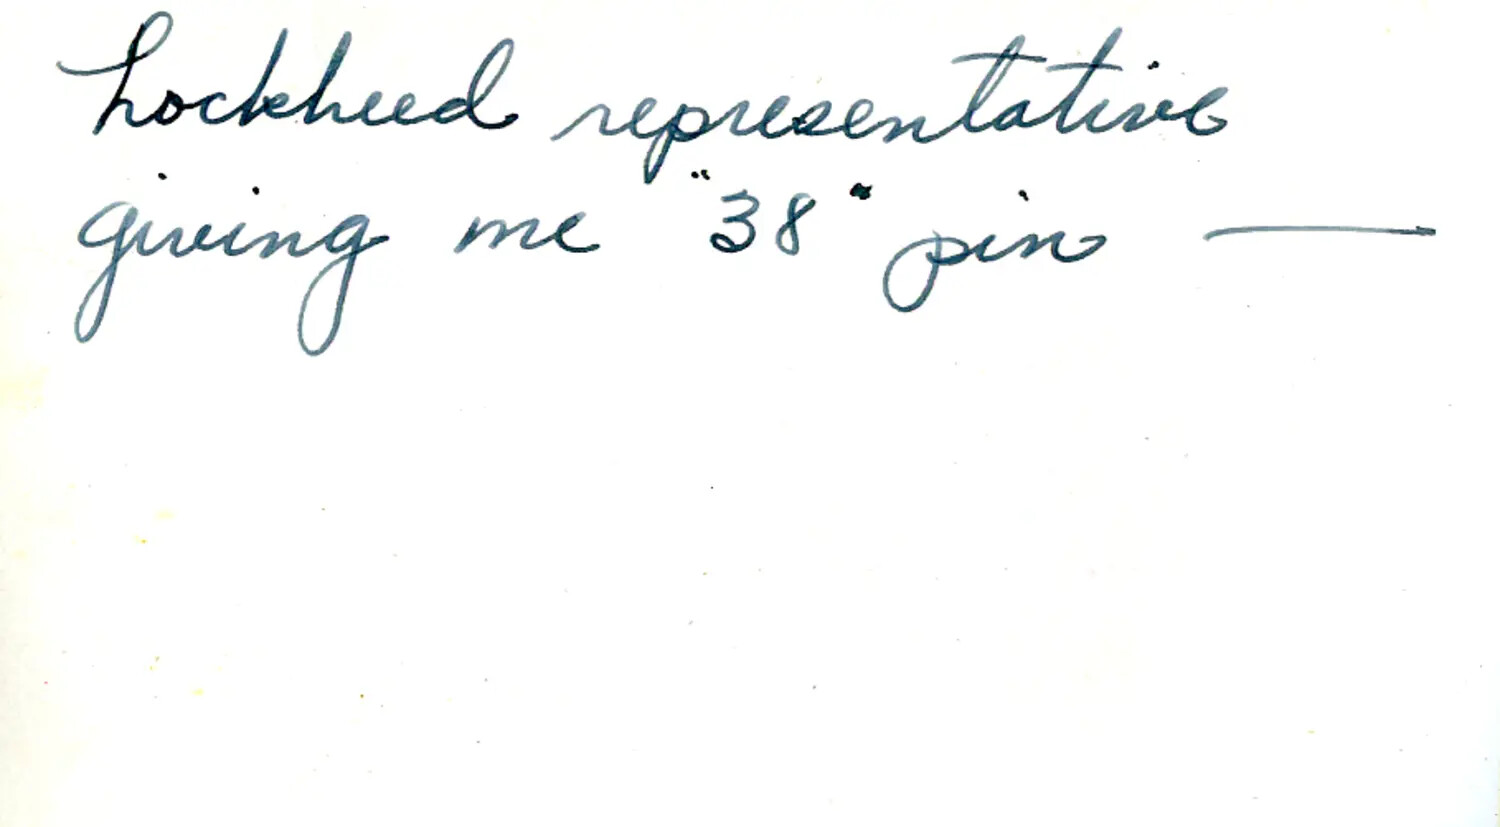 Lockheed representative
giving me "38" pin —